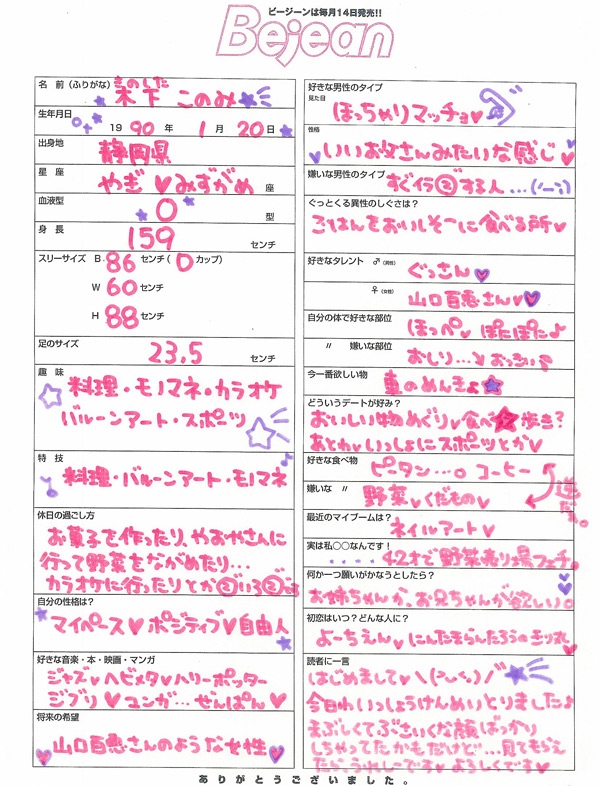 ビージーンは毎月14日発売!!
Bejean
名　前（ふりがな）
きのした
木下 このみ
生年月日
19 90 年 1 月 20 日
出身地
静岡県
星　座
やぎ ♥ みずがめ 座
血液型
O 型
身　長
159 センチ
スリーサイズ B 86 センチ（ D カップ）
W 60 センチ
H 88 センチ
足のサイズ
23.5 センチ
趣　味
料理・モノマネ・カラオケ
バルーンアート・スポーツ
特　技
料理・バルーンアート・モノマネ
休日の過ごし方
お菓子を作ったり、やおやさんに
行って野菜をながめたり…
カラオケに行ったりとか
自分の性格は？
マイペース♥ポジティブ♥自由人
好きな音楽・本・映画・マンガ
ジャズ♥ヘビメタ♥ハリーポッター
ジブリ♥マンガ…ぜんぱん♥
将来の希望
山口百恵さんのような女性
好きな男性のタイプ
見た目
ぽっちゃりマッチョ♥
性格
いいお父さんみたいな感じ
嫌いな男性のタイプ
すぐイライラする人…
ぐっとくる異性のしぐさは？
ごはんをおいしそーに食べる所♥
好きなタレント ♂（男性）
ぐっさん♥
♀（女性）
山口百恵さん♥♥
自分の体で好きな部位
ほっぺ♥ ぽたぽた♪
〃 嫌いな部位
おしり…
今一番欲しい物
車のめんきょ★
どういうデートが好み？
おいしい物めぐり♥食べ★歩き？
あとわ♥いっしょにスポーツとか♥
好きな食べ物
ピータン…。コーヒー
嫌いな 〃
野菜♥くだもの♥
逆だ。
最近のマイブームは？
ネイルアート♥
実は私〇〇なんです！
野菜売り場フェチ。
何か一つ願いがかなうとしたら？
お姉ちゃんか、お兄ちゃんが欲しい。
初恋はいつ？どんな人に？
よーちえん♥にんたまらんたろうのきり丸
読者に一言
はじめまして♥
今日わいっしょうけんめいとりました♪
まぶしくてぶさいくな顔ばっかり
しちゃってたかもだけど…見てもらえ
たら、うれしーです♥よろしくです♥
ありがとうございました。